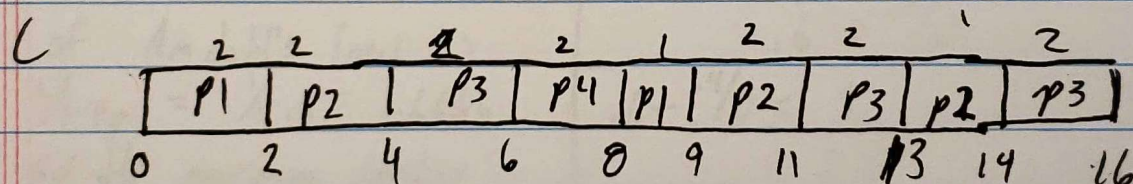 C 2 2 2 2 1 2 2 1 2
P1 P2 P3 P4 P1 P2 P3 P2 P3
0 2 4 6 8 9 11 13 14 16